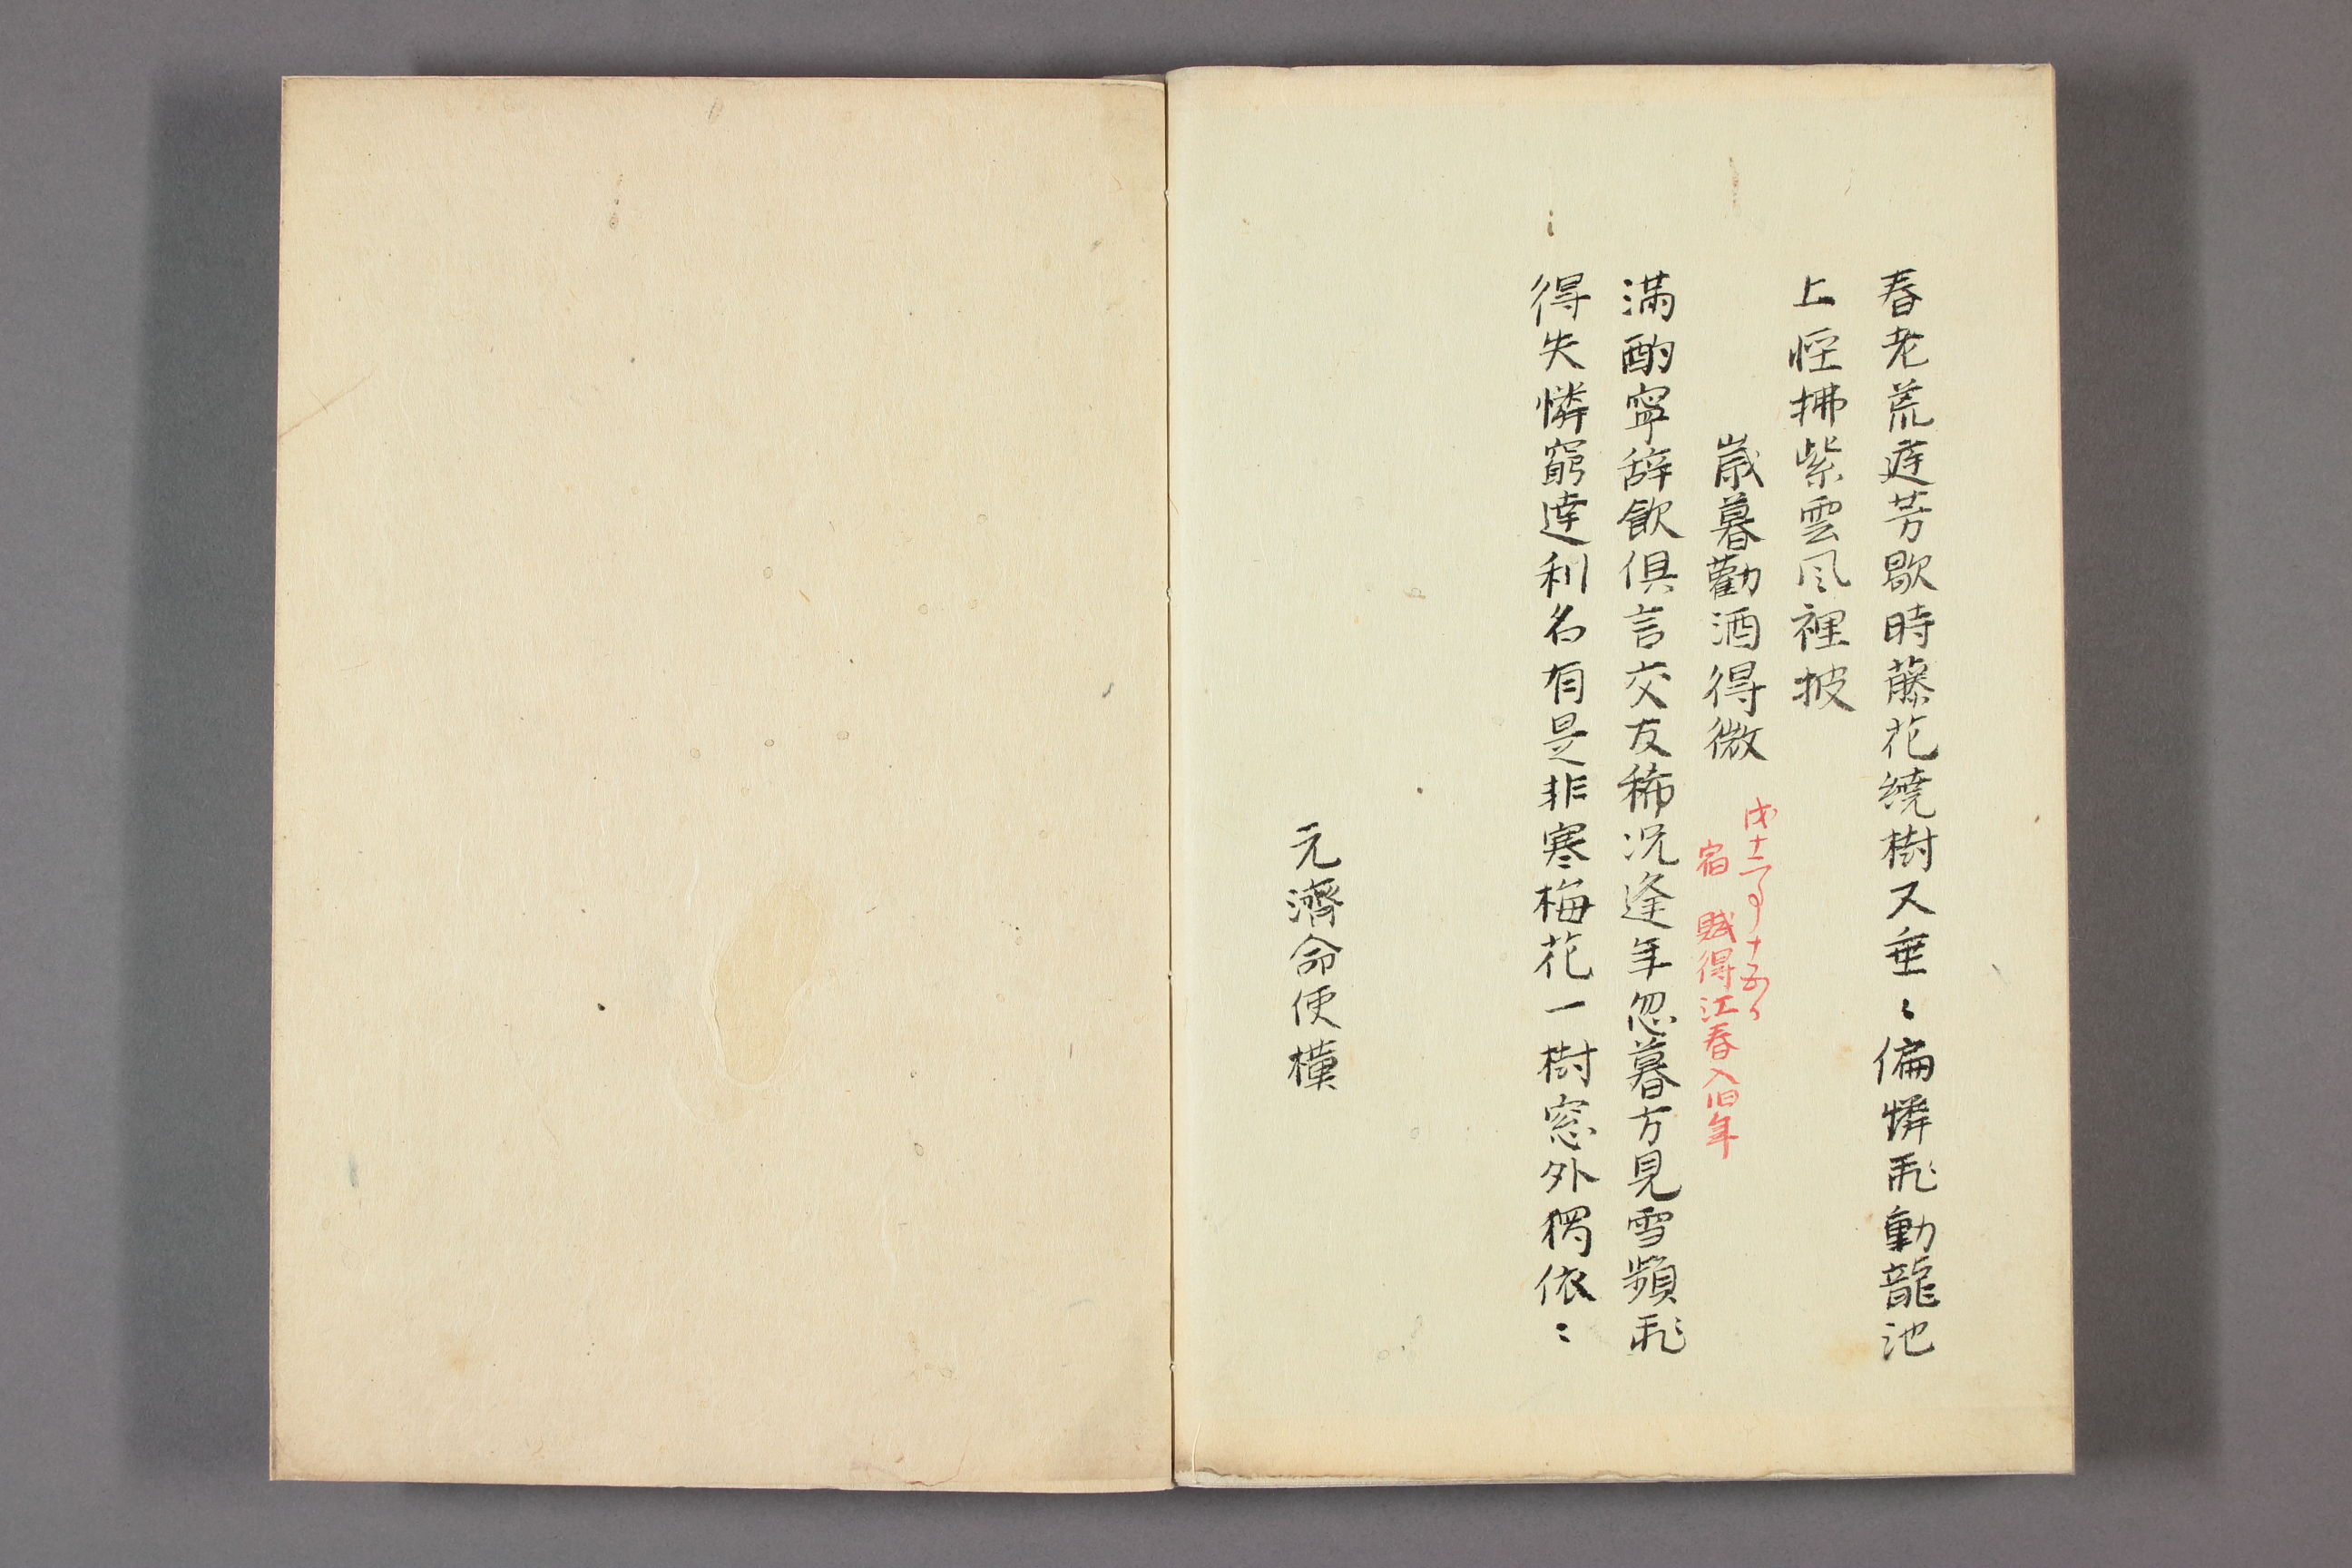 春老荒庭芳歇時藤花繞樹又垂〻偏憐飛動龍池
上怪拂紫雲風裡披
歳暮勸酒得微
戊十二月十五日
宿 賦得江春入旧年
滿酌寧辞飲俱言交友稀况逢年忽暮方見雪頻飛
得失憐窮達利名有是非寒梅花一樹窓外獨依〻
元濟命使橫